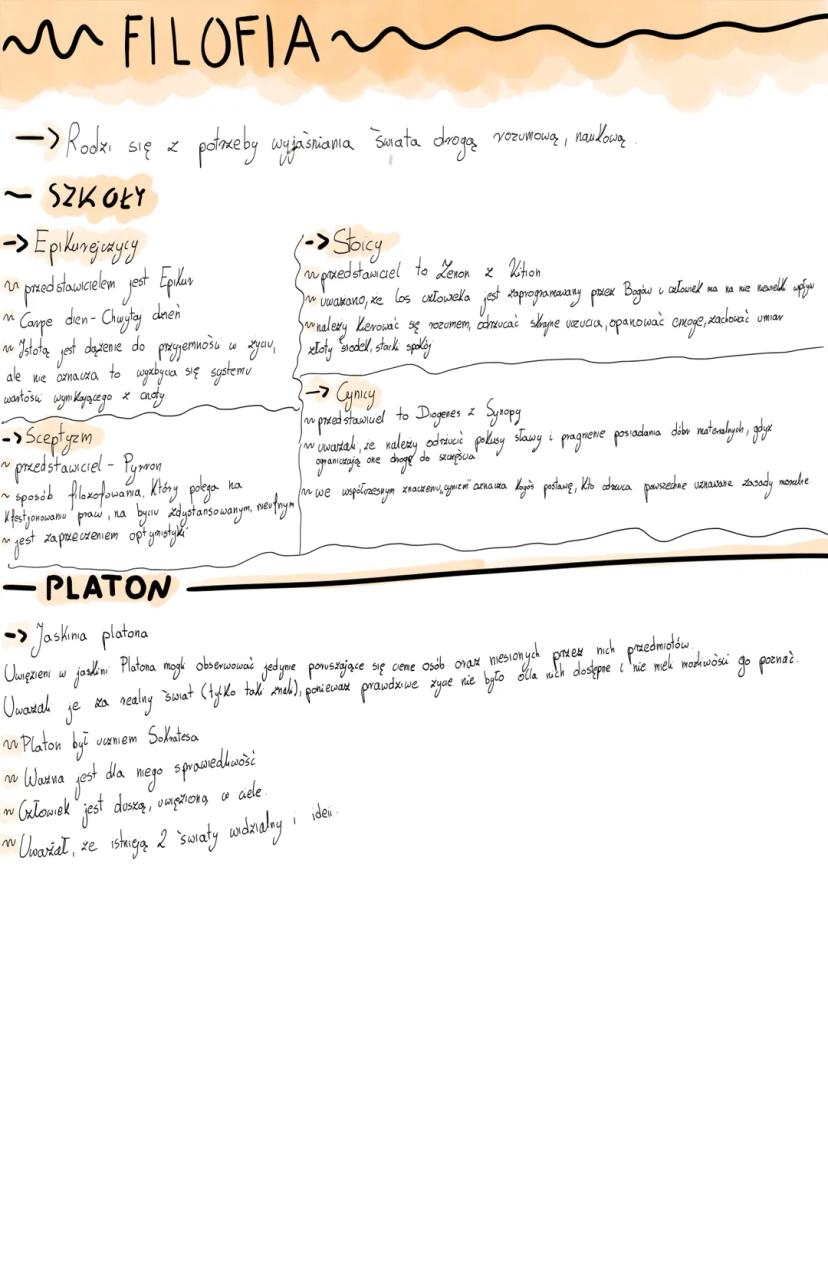 FILOFIA
-> Rodzi się z potrzeby wyjaśniania świata drogą rozumową, naukową.
- SZKOŁY
-> Epikurejczycy
~ przedstawicielem jest Epikur
~ Carpe dien - Chwytaj dzień
~ Istotą jest dążenie do przyjemności w życiu,
ale nie oznacza to wyzbycia się systemu
wartości wynikającego z cnoty.
-> Sceptyzm
~ przedstawiciel - Pyrron
~ sposób filozofowania, który polega na
kfestjonowaniu praw, na byciu zdystansowanym, nieufnym
~ jest zaprzeczeniem optymistyki
-> Stoicy
~ przedstawiciel to Zenon z Kition
~ uważano, że los człowieka jest zaprogramowany przez Bogów i człowiek ma na nie niewielki wpływ
~ należy kierować się rozumem, odrzucać skrajne uczucia, opanować emocje, zachować umiar
złoty środek, stoicki spokój
-> Cynicy
~ przedstawiciel to Diogenes z Synopy
~ uważali, że należy odrzucić pokusy sławy i pragnienie posiadania dóbr materialnych, gdyż
ograniczają one drogę do szczęścia.
~ we współczesnym znaczeniu "cynizm" oznacza kogoś postawę, kto odrzuca powszechnie uznawane zasady moralne
- PLATON
-> Jaskinia platona
Uwięzieni w jaskini Platona mogli obserwować jedynie poruszające się cienie osób oraz niesionych przez nich przedmiotów.
Uważali je za realny świat (tylko taki znali), ponieważ prawdziwe życie nie było dla nich dostępne i nie mieli możliwości go poznać.
~ Platon był uczniem Sokratesa
~ Ważna jest dla niego sprawiedliwość
~ Człowiek jest duszą, uwięzioną w ciele.
~ Uważał, że istnieją 2 światy widzialny i ideii.